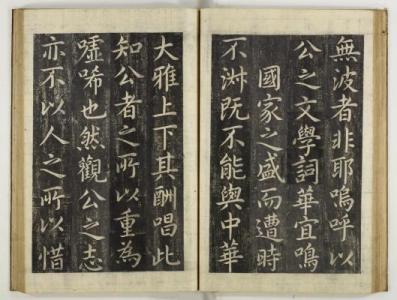 無波者非耶嗚呼以
公之文學詞華宜鳴
國家之盛而遭時
不淑既不能與中華
大雅上下其酬唱此
知公者之所以重為
嘘唏也然觀公之志
亦不以人之所以惜